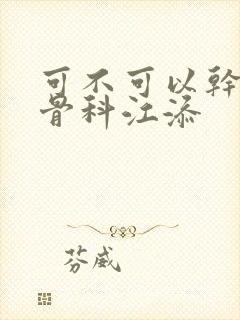 可不可以幹
骨科江添
芬威